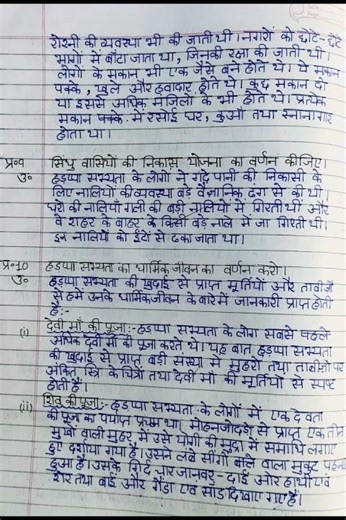 रोशनी की व्यवस्था भी की जाती थी। नगरों को छोटे-छोटे
भागों में बाँटा जाता था, जिनकी रक्षा की जाती थी।
लोगों के मकान भी एक जैसे बने होते थे। ये मकान
पक्के, खुले और हवादार होते थे। कुछ मकान दो
या इससे अधिक मंजिलों के भी होते थे। प्रत्येक
मकान पक्के में रसोई घर, कुआँ तथा स्नानागार
होता था।
प्र०9 सिंधु वासियों की निकास योजना का वर्णन कीजिए।
उ० हड़प्पा सभ्यता के लोगों ने गंदे पानी की निकासी के
लिए नालियों की व्यवस्था बड़े वैज्ञानिक ढंग से की थी।
घरों की नालियाँ गली की बड़ी नालियों में गिरती थीं और
वे शहर के बाहर के किसी बड़े नाले में जा गिरती थी।
इन नालियों को ईंटों से ढका जाता था।
प्र०10 हड़प्पा सभ्यता का धार्मिक जीवन का वर्णन करो।
उ० हड़प्पा सभ्यता की खुदाई से प्राप्त मूर्तियों और ताबीजों
से हमें उनके धार्मिक जीवन के बारे में जानकारी प्राप्त होती
है:-
(i) देवी माँ की पूजा:- हड़प्पा सभ्यता के लोग सबसे पहले
अधिक देवी माँ की पूजा करते थे। यह बात हड़प्पा सभ्यता
की खुदाई से प्राप्त बड़ी संख्या में मुहरों तथा ताबीजों पर
अंकित स्त्रि के चित्रों तथा देवी माँ की मूर्तियों से स्पष्ट
होती है।
(ii) शिव की पूजा:- हड़प्पा सभ्यता के लोगों में एक देवता
की पूजा का पर्याप्त प्रथम था। मोहनजोदड़ो से प्राप्त एक तीन
मुखों वाली मुहर में उसे योगी की मुद्रा में समाधि लगाए
हुए दर्शाया गया है। उसने लंबे सींगों वाला मुकुट पहना
हुआ है। उसके गिर्द चार जानवर- दाई ओर हाथी एवं
शेर तथा बाई ओर गैंडा एवं सांड दिखाए गए हैं।